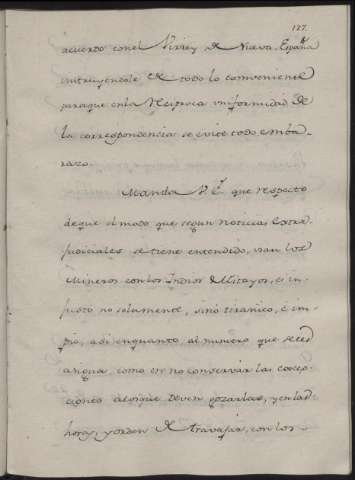 127.
acuerdo conel Virrey de Nueva España
instruyendole de todo lo conveniente
paraque enla reciproca uniformidad de
la correspondencia se evite todo emba-
razo.
Manda V. E. que respecto
deque el modo que segun noticias extra-
judiciales se tiene entendido, usan los
Mineros con los Indios de Mitayos, es in-
justo no solamente, sino tiranico, é im-
pio, asi enquanto al numero que se les
como en no conservar las excep-
ciones alosque deven gozarlas, yenlas
horas, y orden de travajar, con los